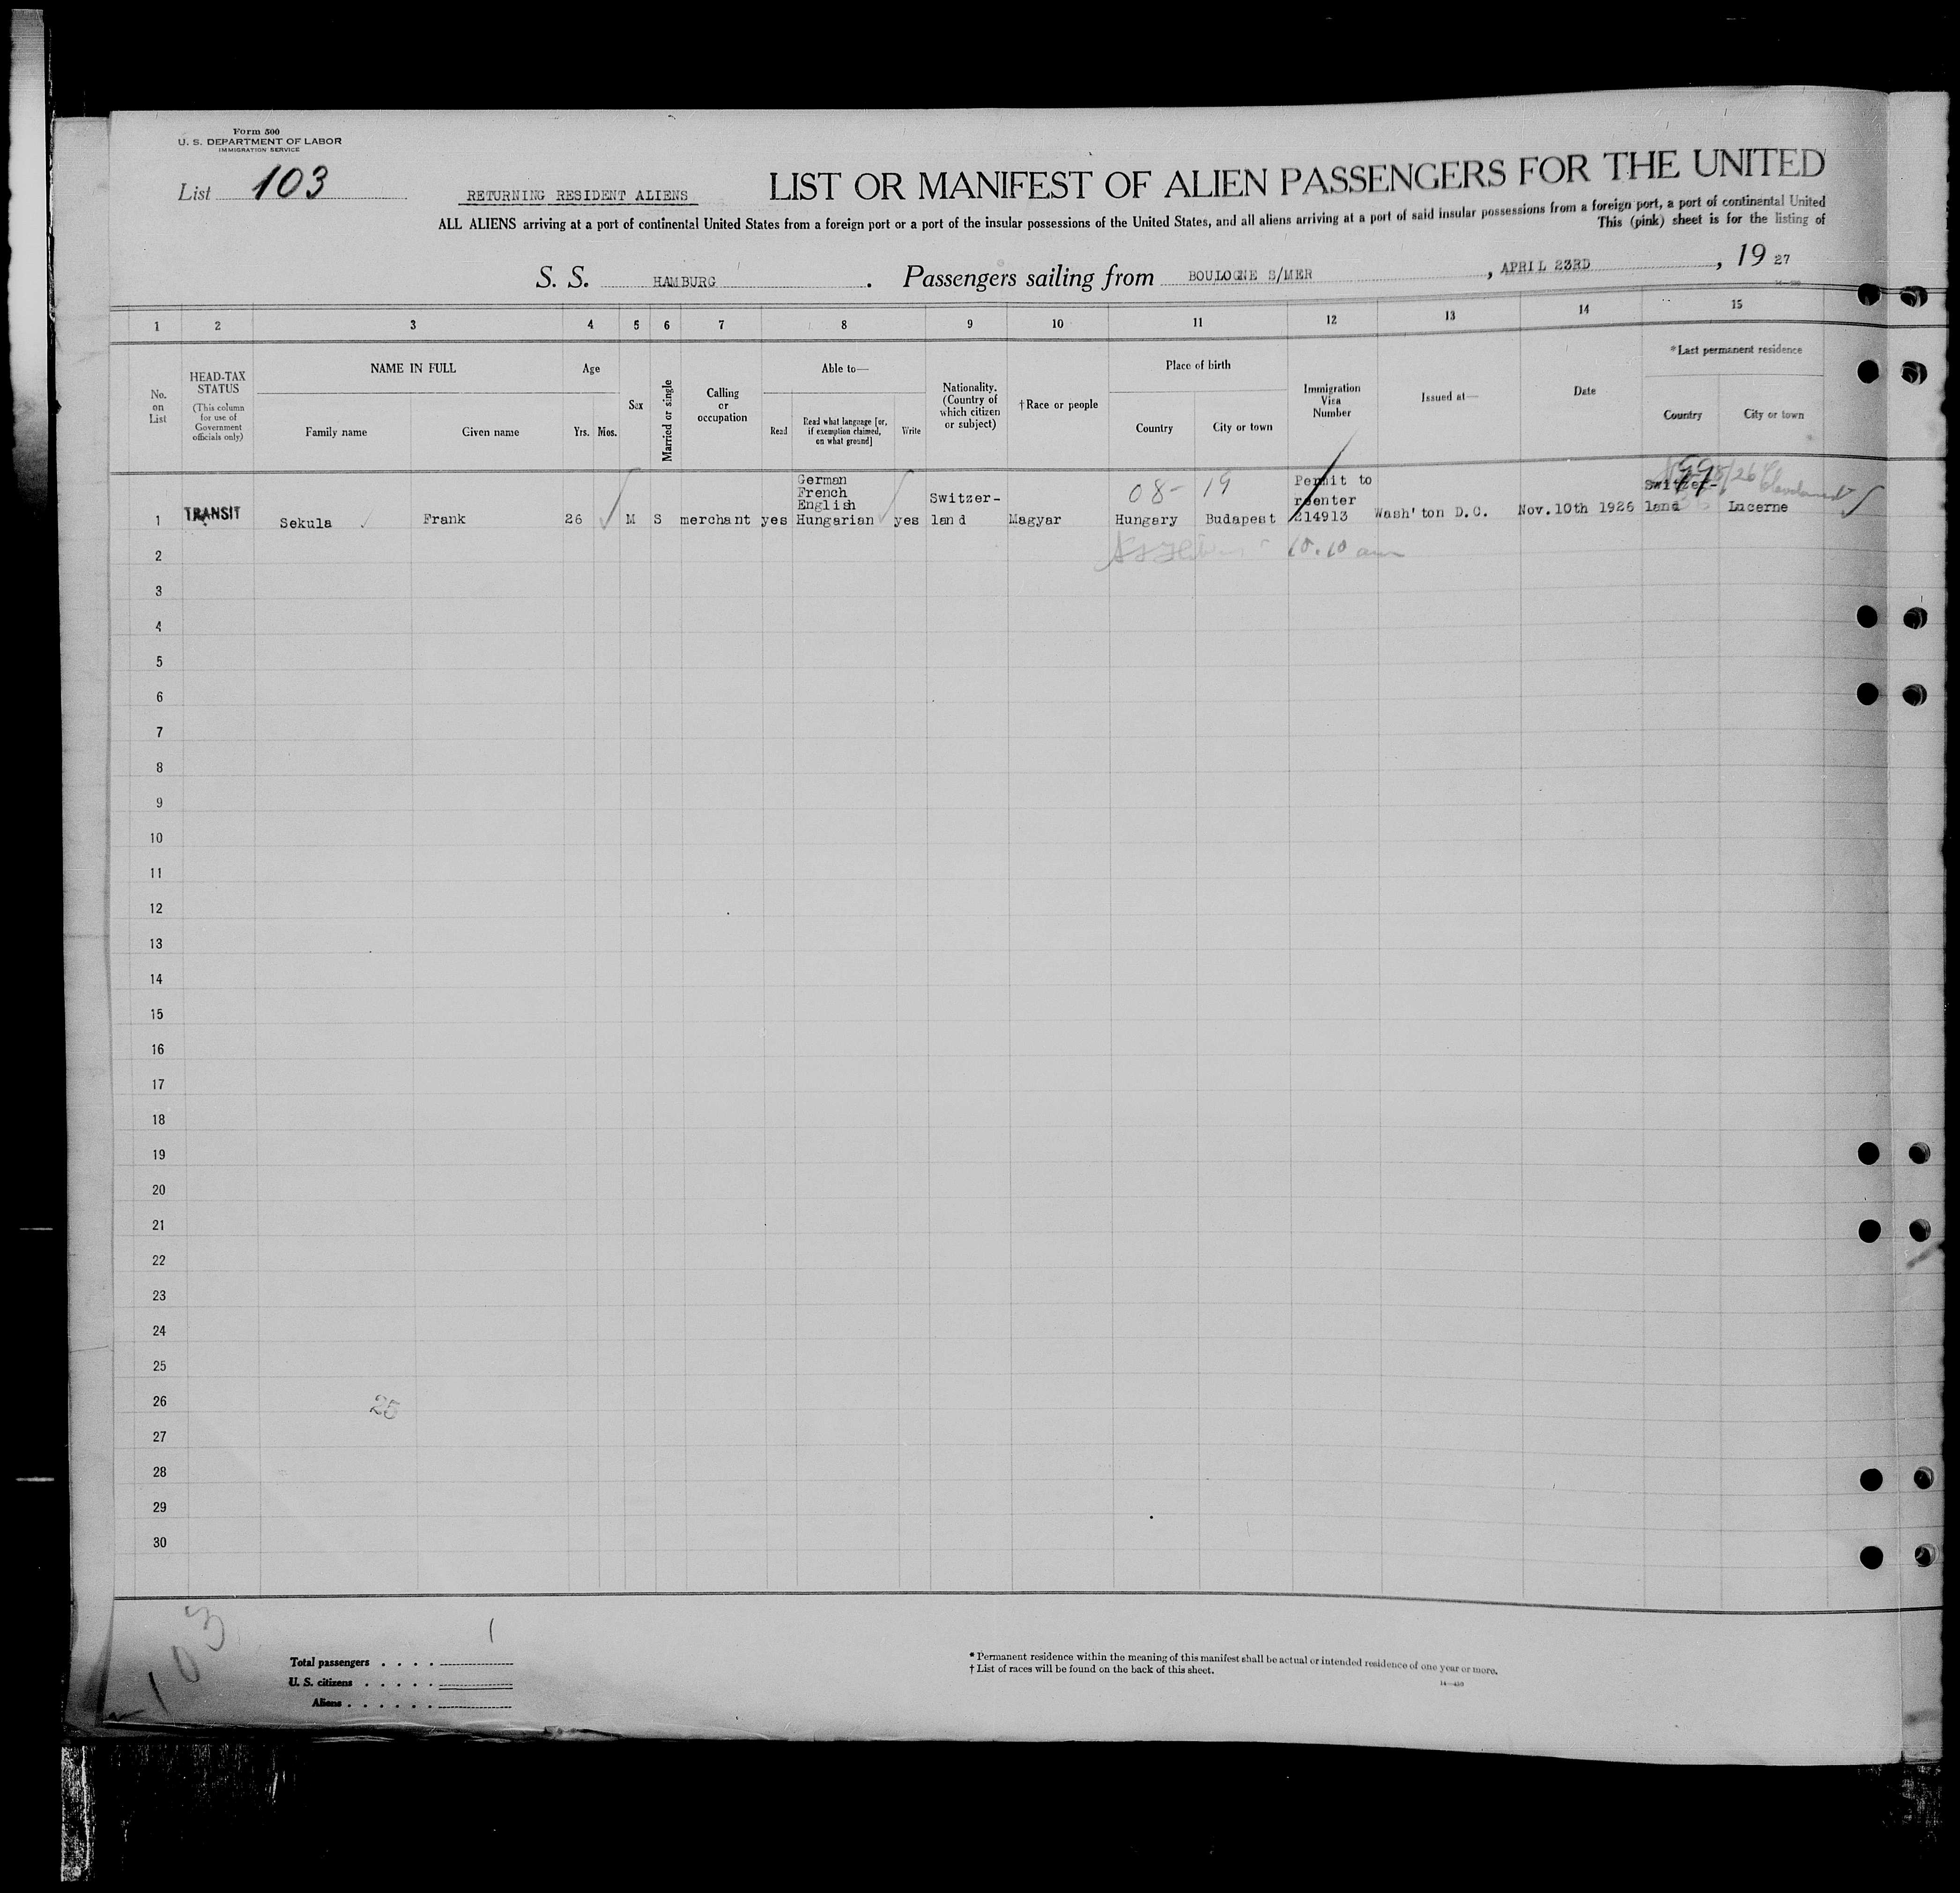 Form 500
U. S. DEPARTMENT OF LABOR
IMMIGRATION SERVICE
List 103
RETURNING RESIDENT ALIENS
LIST OR MANIFEST OF ALIEN PASSENGERS FOR THE UNITED
ALL ALIENS arriving at a port of continental United States from a foreign port or a port of the insular possessions of the United States, and all aliens arriving at a port of said insular possessions from a foreign port, a port of continental United
This (pink) sheet is for the listing of
S. S. HAMBURG . Passengers sailing from BOULOGNE S/MER , APRIL 23RD , 19 27
1 2 3 4 5 6 7 8 9 10 11 12 13 14 15
No. on List
HEAD-TAX STATUS
(This column for use of Government officials only)
NAME IN FULL
Family name
Given name
Age
Yrs. Mos.
Sex
Married or single
Calling or occupation
Able to—
Read
Read what language [or, if exemption claimed, on what ground]
Write
Nationality. (Country of which citizen or subject)
†Race or people
Place of birth
Country
City or town
Immigration Visa Number
Issued at—
Date
*Last permanent residence
Country
City or town
1 TRANSIT Sekula Frank 26 M S merchant yes German French English Hungarian yes Switzer-land Magyar Hungary Budapest Permit to reenter 214913 Wash'ton D.C. Nov.10th 1926 Switzer-land Lucerne
08- 19
99
2 10.10 am
3
4
5
6
7
8
9
10
11
12
13
14
15
16
17
18
19
20
21
22
23
24
25
26
25
27
28
29
30
103
1
Total passengers
U. S. citizens
Aliens
* Permanent residence within the meaning of this manifest shall be actual or intended residence of one year or more.
† List of races will be found on the back of this sheet.